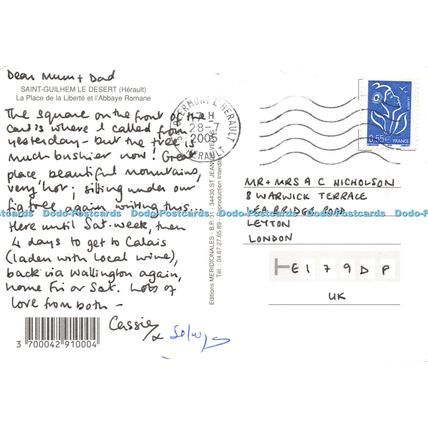 Dear Mum + Dad
SAINT-GUILHEM LE DESERT (Hérault)
La Place de la Liberté et l'Abbaye Romane
The square on the front of the
card is where I called from
yesterday - but the tree is
much bushier now! Great
place, beautiful mountains,
very hot; sitting under our
fig tree again writing this...
Here until Sat. week, then
4 days to get to Calais
(laden with local wine),
back via Wallington again,
home Fri or Sat. Lots of
love from both -
Cassie
3 700042 910004
Editions MERIDIONALES - B.P. 31 - 34430 ST JEAN DE VEDAS
Tél. 04.67.27.65.89
CLERMONT L'HERAULT
28-7
2005
HERAULT
0,55€ FRANCE
MR + MRS A C NICHOLSON
8 WARWICK TERRACE
LEA BRIDGE ROAD
LEYTON
LONDON
E179DP
UK
Dodo-Postcards Dodo-Postcards Dodo-Postcards Dodo-Postcards Dodo-Postcards